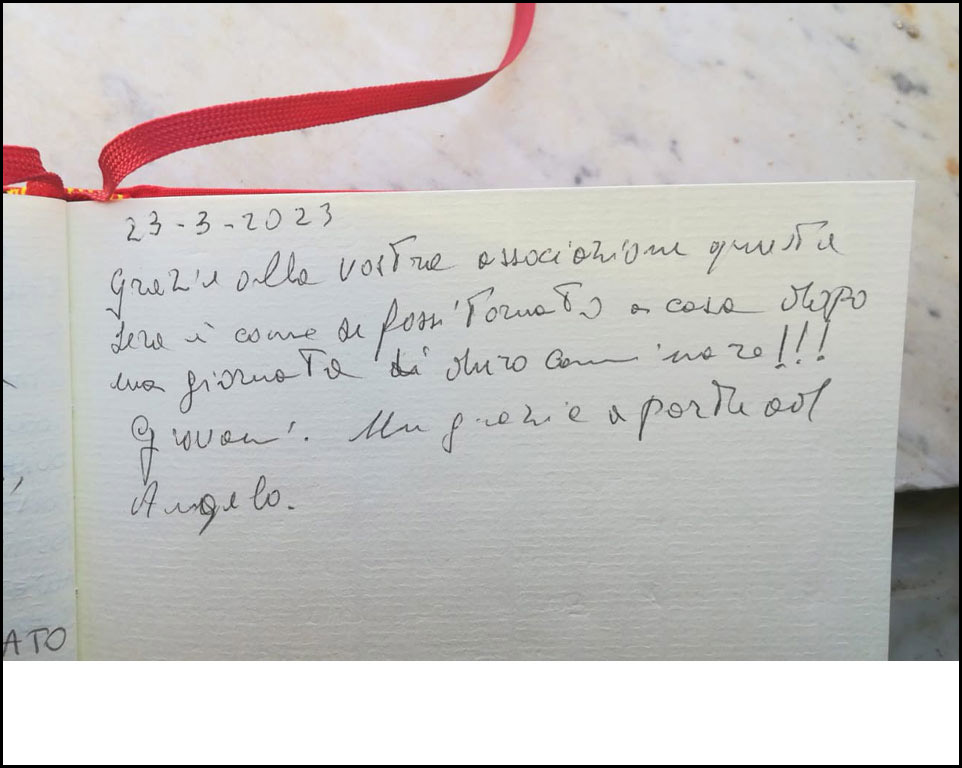 23-3-2023
Grazie alla vostra associazione questa
sera è come se fossi tornato a casa dopo
una giornata di duro camminare!!!
Giovani. Un grazie a parte ad
Angelo.
ATO